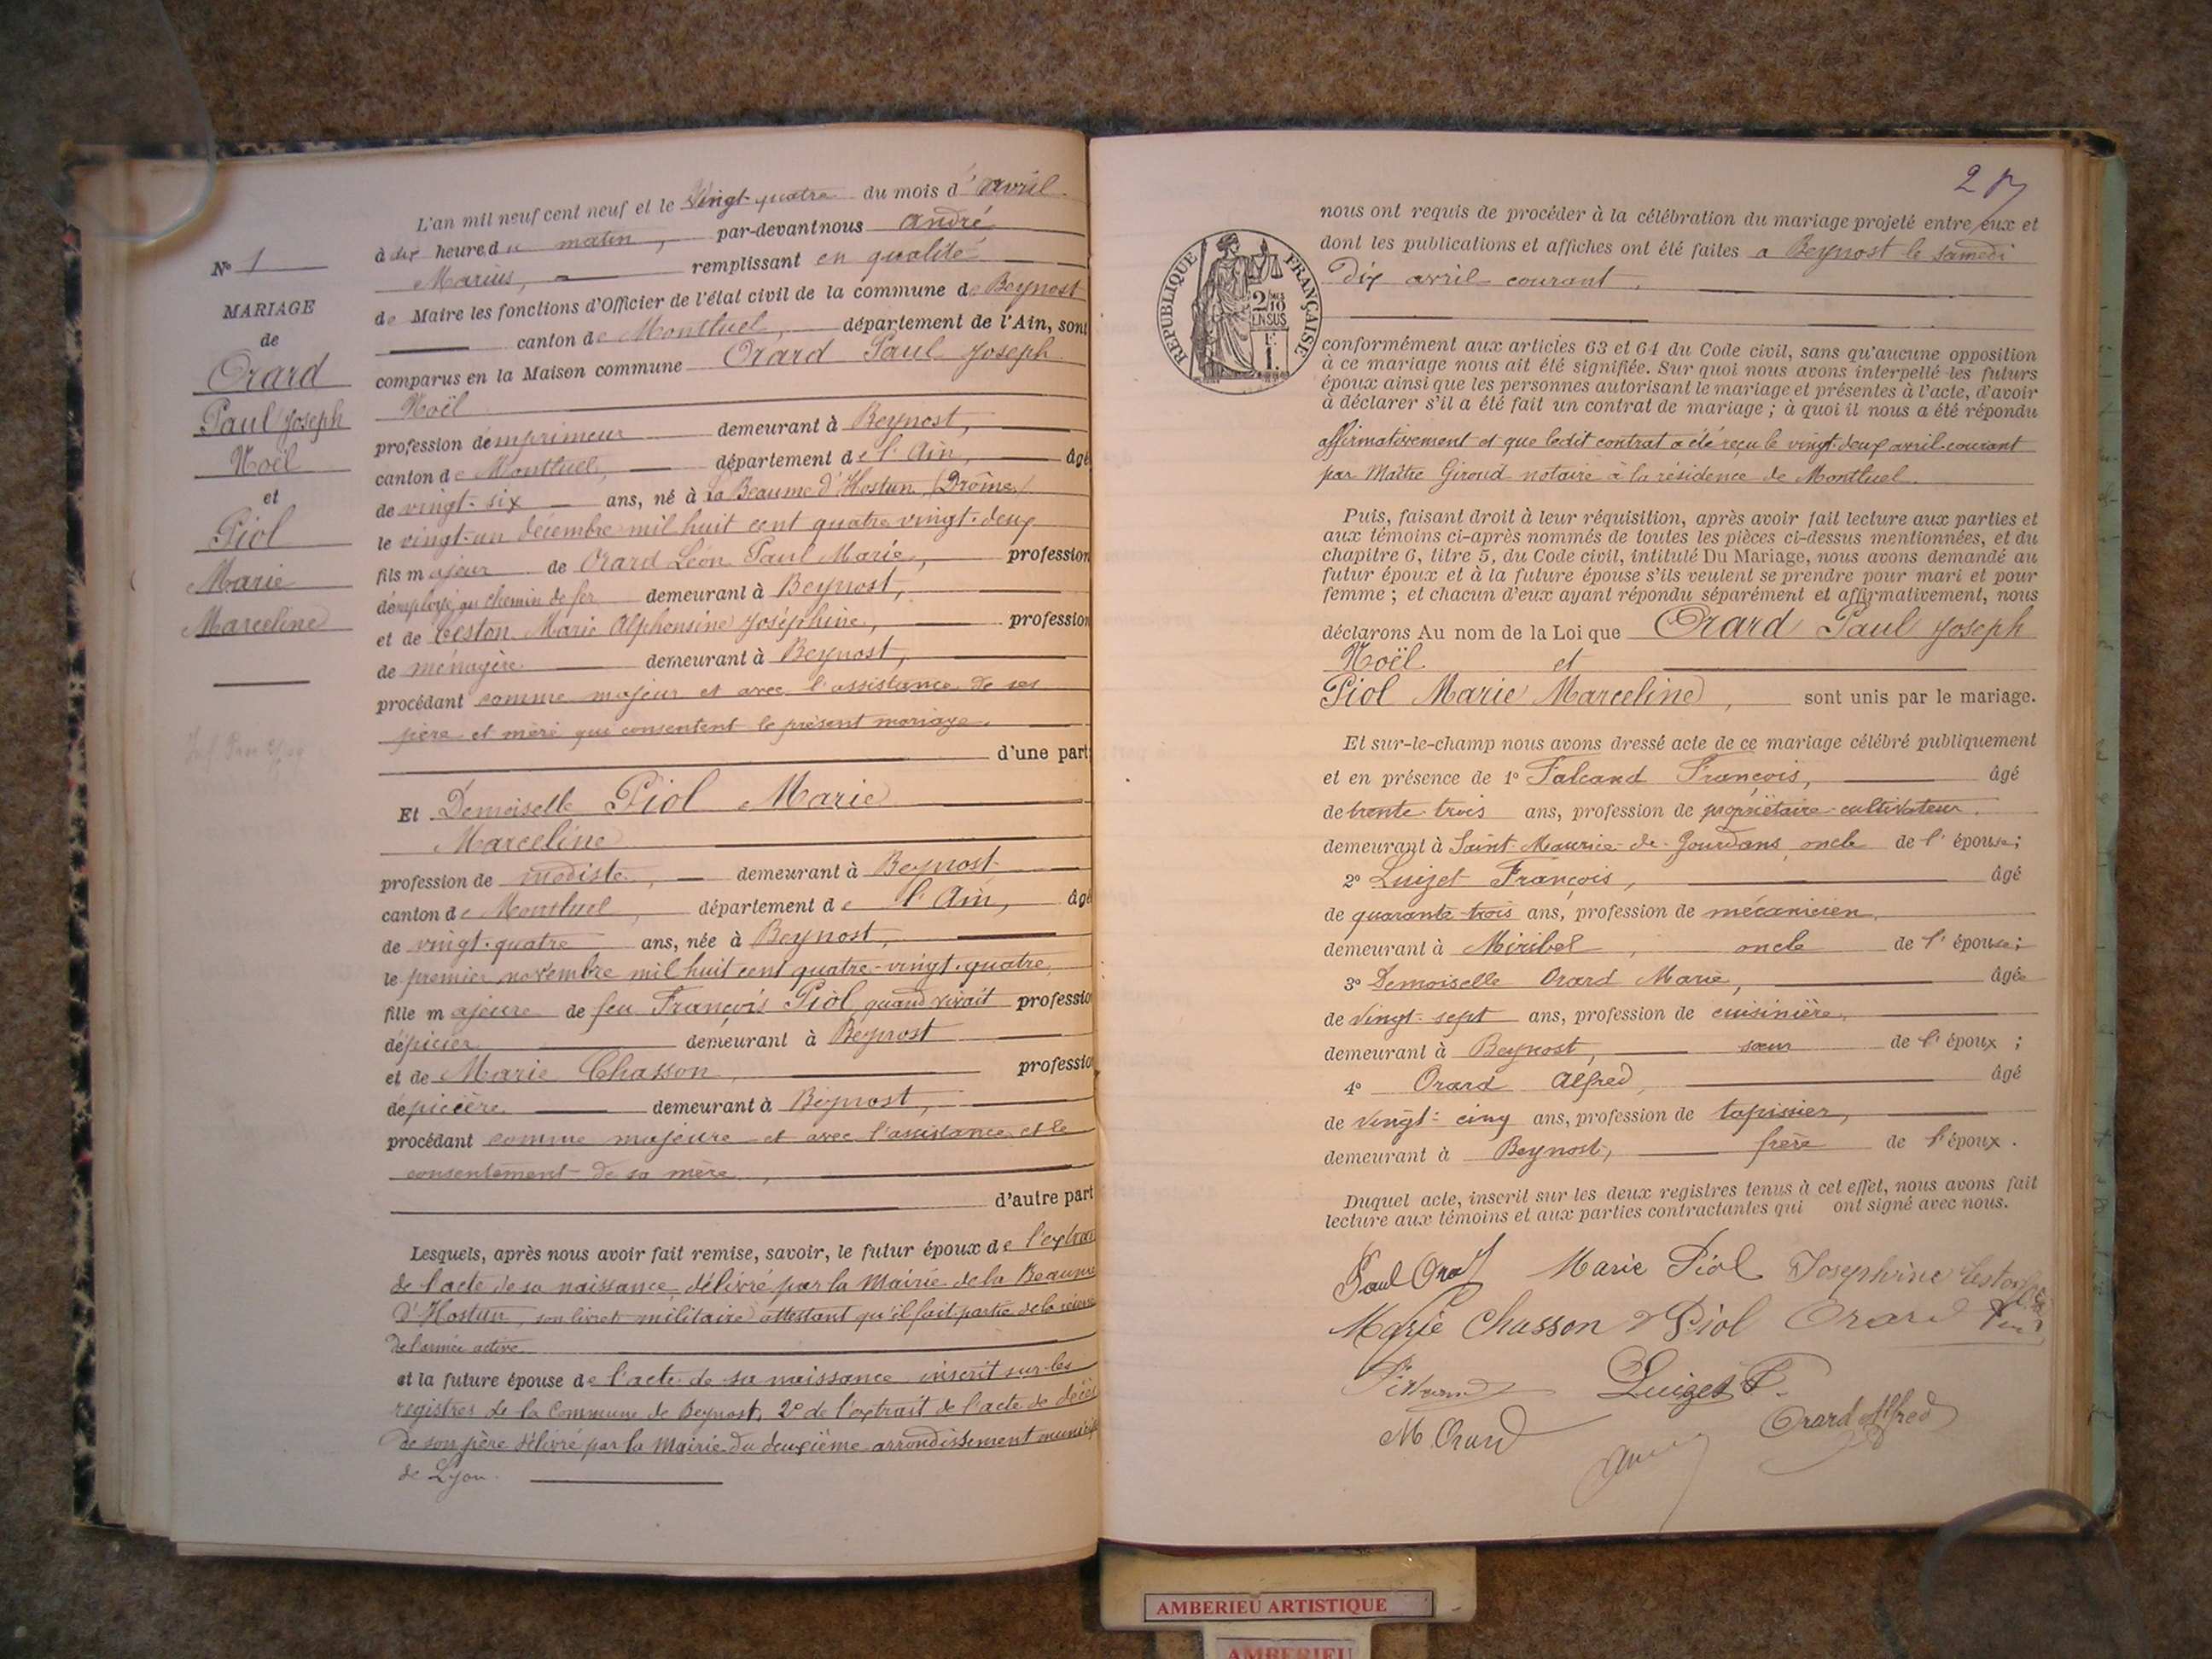 L'an mil neuf cent neuf et le Vingt-quatre du mois d'avril
à dix heures du matin, par-devant nous André
Marius, remplissant en qualité
de Maire les fonctions d'Officier de l'état civil de la commune de Beynost
canton de Montluel, département de l'Ain, sont
comparus en la Maison commune Orard Paul Joseph
Noël
profession d'imprimeur demeurant à Beynost,
canton de Montluel, département de l'Ain, âgé
de vingt-six ans, né à la Beaume d'Hostun (Drôme)
le vingt-un décembre mil huit cent quatre vingt-deux
fils majeur de Orard Léon Paul Marie, profession
d'employé au chemin de fer demeurant à Beynost,
et de Ceston Marie Alphonsine Joséphine, profession
de ménagère demeurant à Beynost,
procédant comme majeur et avec l'assistance de ses
père et mère qui consentent le présent mariage.
d'une part;
Et Demoiselle Piol Marie
Marceline
profession de modiste, demeurant à Beynost
canton de Montluel, département de l'Ain, âgé
de vingt-quatre ans, née à Beynost,
le premier novembre mil huit cent quatre-vingt-quatre,
fille majeure de feu François Piol quand vivait profession
d'épicier demeurant à Beynost
et de Marie Chasson, profession
d'épicière demeurant à Beynost,
procédant comme majeure et avec l'assistance et le
consentement de sa mère,
d'autre part
Lesquels, après nous avoir fait remise, savoir, le futur époux de l'extrait
de l'acte de sa naissance, délivré par la Mairie de la Beaume
d'Hostun, son livret militaire attestant qu'il fait partie de la réserve
de l'armée active
et la future épouse de l'acte de sa naissance inscrit sur les
registres de la Commune de Beynost, 2º de l'extrait de l'acte de décès
de son père délivré par la Mairie du deuxième arrondissement municipal
de Lyon.
Nº 1
MARIAGE
de
Orard
Paul Joseph
Noël
et
Piol
Marie
Marceline
2
nous ont requis de procéder à la célébration du mariage projeté entre eux et
dont les publications et affiches ont été faites a Beynost le samedi
dix avril courant.
RÉPUBLIQUE FRANÇAISE
2/10
EN SUS
conformément aux articles 63 et 64 du Code civil, sans qu'aucune opposition
à ce mariage nous ait été signifiée. Sur quoi nous avons interpellé les futurs
époux ainsi que les personnes autorisant le mariage et présentes à l'acte, d'avoir
à déclarer s'il a été fait un contrat de mariage ; à quoi il nous a été répondu
affirmativement et que ledit contrat a été reçu le vingt-deux avril courant
par Maître Giroud notaire à la résidence de Montluel.
Puis, faisant droit à leur réquisition, après avoir fait lecture aux parties et
aux témoins ci-après nommés de toutes les pièces ci-dessus mentionnées, et du
chapitre 6, titre 5, du Code civil, intitulé Du Mariage, nous avons demandé au
futur époux et à la future épouse s'ils veulent se prendre pour mari et pour
femme ; et chacun d'eux ayant répondu séparément et affirmativement, nous
déclarons Au nom de la Loi que Orard Paul Joseph
Noël et
Piol Marie Marceline, sont unis par le mariage.
Et sur-le-champ nous avons dressé acte de ce mariage célébré publiquement
et en présence de 1º Falcand François, âgé
de trente-trois ans, profession de propriétaire-cultivateur.
demeurant à Saint-Maurice-de-Gourdans oncle de l'épouse;
2º Luizet François, âgé
de quarante trois ans, profession de mécanicien,
demeurant à Miribel, oncle de l'épouse;
3º Demoiselle Orard Marie, âgée
de vingt-sept ans, profession de cuisinière,
demeurant à Beynost, sœur de l'époux ;
4º Orard Alfred, âgé
de vingt-cinq ans, profession de tapissier,
demeurant à Beynost, frère de l'époux.
Duquel acte, inscrit sur les deux registres tenus à cet effet, nous avons fait
lecture aux témoins et aux parties contractantes qui ont signé avec nous.
Paul Orard Marie Piol Josephine Ceston
Marie Chasson Piol Orard
Luizet F.
M. Orard Orard Alfred
AMBERIEU ARTISTIQUE
AMBERIEU